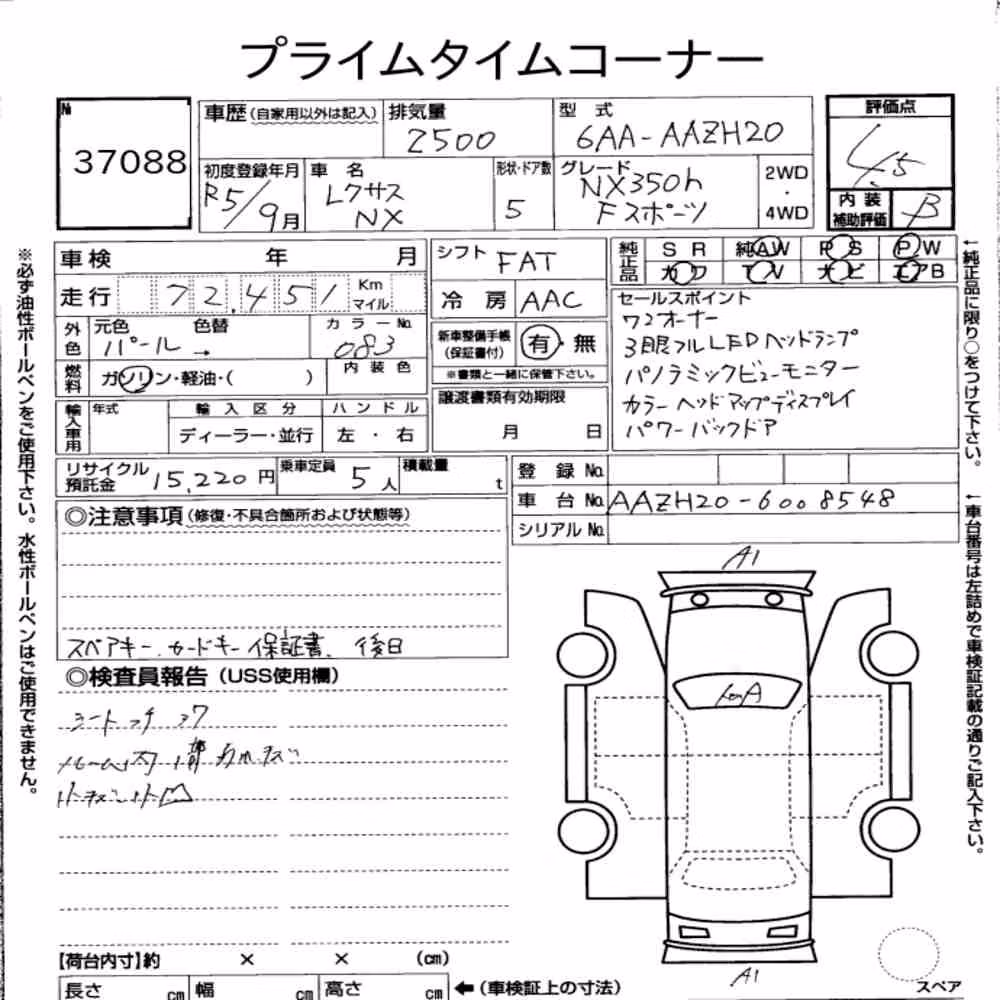 プライムタイムコーナー
№
37088
車歴(自家用以外は記入)
排気量
2500
型 式
6AA-AAZH20
評価点
4.5
初度登録年月
R5/9月
車 名
レクサス
NX
形状・ドア数
5
グレード
NX350h
Fスポーツ
2WD
・
4WD
内 装
補助評価
B
車検 年 月
シフト FAT
純正品
SR 純AW PS PW
カワ TV ナビ エアB
走行 72,451 Km マイル
冷 房 AAC
セールスポイント
ワンオーナー
3眼フルLEDヘッドランプ
パノラミックビューモニター
カラーヘッドアップディスプレイ
パワーバックドア
外色
元色 色替
パール →
カラーNo.
083
新車整備手帳
(保証書付)
有・無
※書類と一緒に保管下さい。
燃料
ガソリン・軽油・( )
内 装 色
譲渡書類有効期限
月 日
輸入車用
年式
輸 入 区 分
ハ ン ド ル
ディーラー・並行
左 ・ 右
リサイクル
預託金
15,220円
乗車定員
5人
積載量
t
登 録 No.
車 台 No. AAZH20-6008548
シリアル No.
◎注意事項(修復・不具合箇所および状態等)
スペアキー.カードキー 保証書、後日
◎検査員報告(USS使用欄)
A1
A1
スペア
【荷台内寸】約 × × (cm)
長さ cm 幅 cm 高さ cm ←(車検証上の寸法)
※必ず油性ボールペンをご使用下さい。水性ボールペンはご使用できません。
←純正品に限り○をつけて下さい。
←車台番号は左詰めで車検証記載の通りご記入下さい。